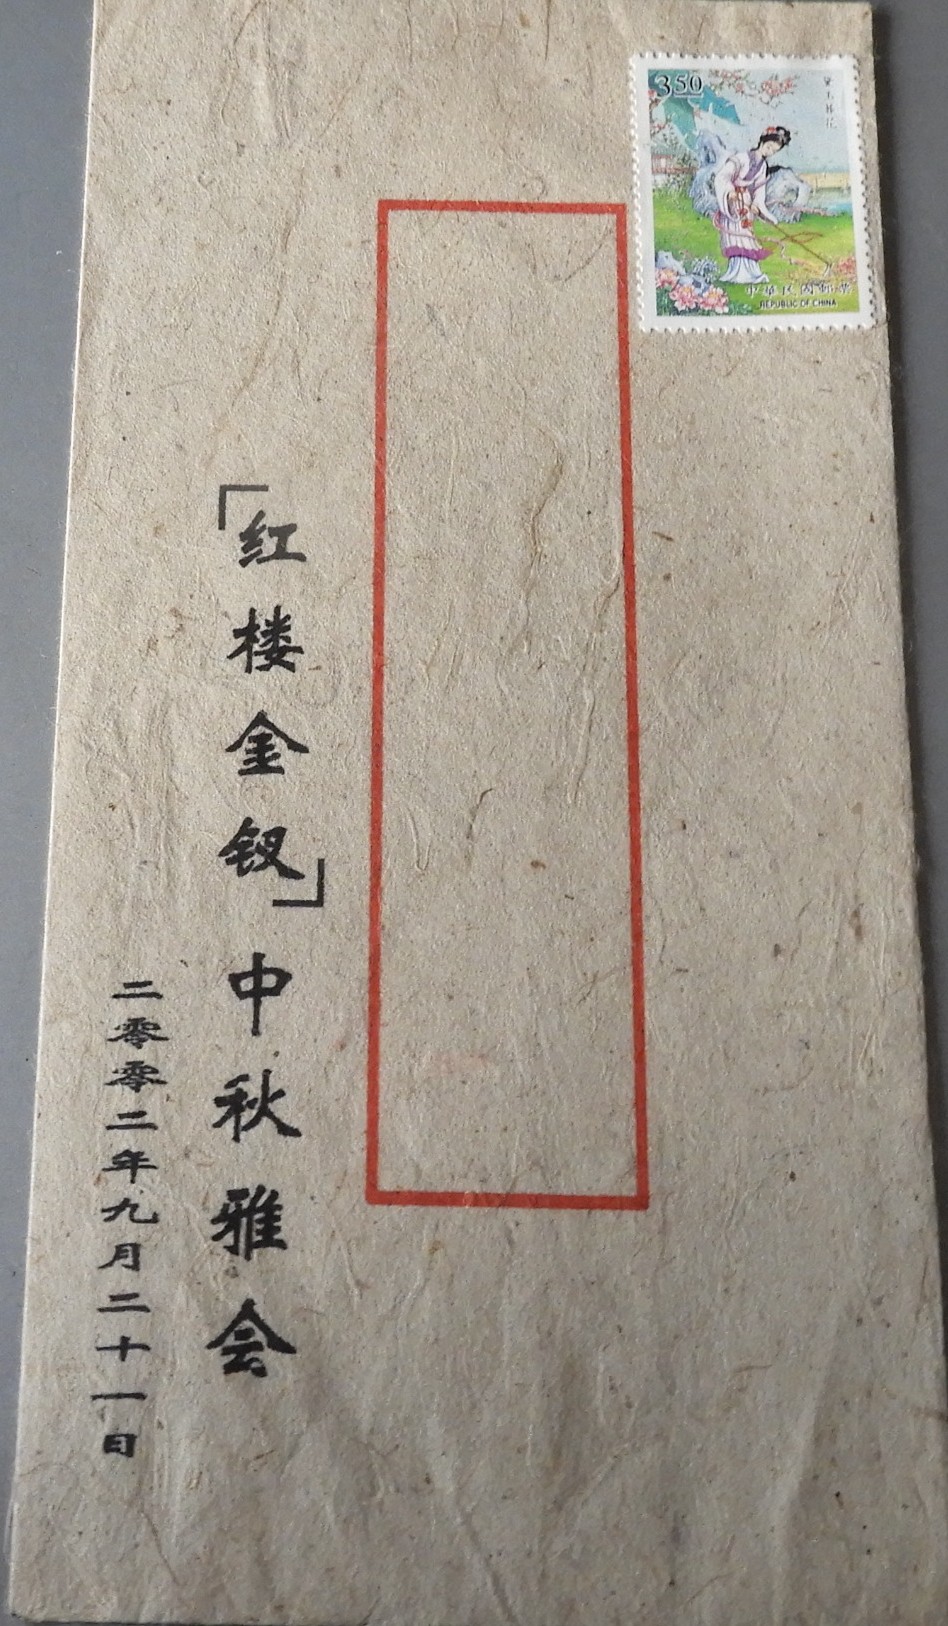 3 50
黛玉葬花
中華民國郵票
REPUBLIC OF CHINA
「红楼金钗」中秋雅会
二零零二年九月二十一日